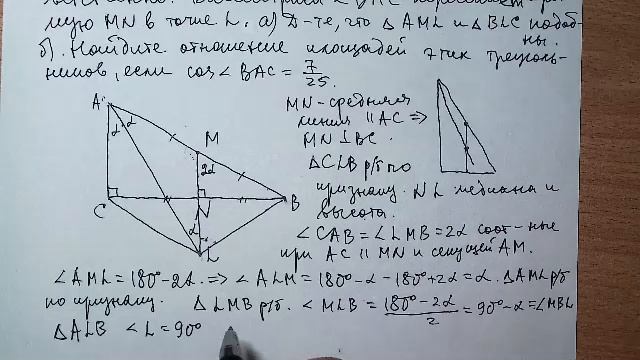 мую MN в точке L. а) Д-те, что △ AML и △ BLC подоб-
ны.
б). Найдите отношение площадей этих треуголь-
ников, если cos∠BAC = 7/25.
A
α α
M
2α
C
N
B
α
L
MN - средняя
линия || AC ⇒
MN ⊥ BC.
△CLB р/б по
признаку. NL медиана и
высота.
∠CAB = ∠LMB = 2α соот-ные
при AC || MN и секущей AM.
∠AML = 180° - 2α. ⇒ ∠ALM = 180° - α - 180° + 2α = α. △AML р/б
по признаку. △LMB р/б. ∠MLB = (180° - 2α)/2 = 90° - α = ∠MBL
△ALB ∠L = 90°